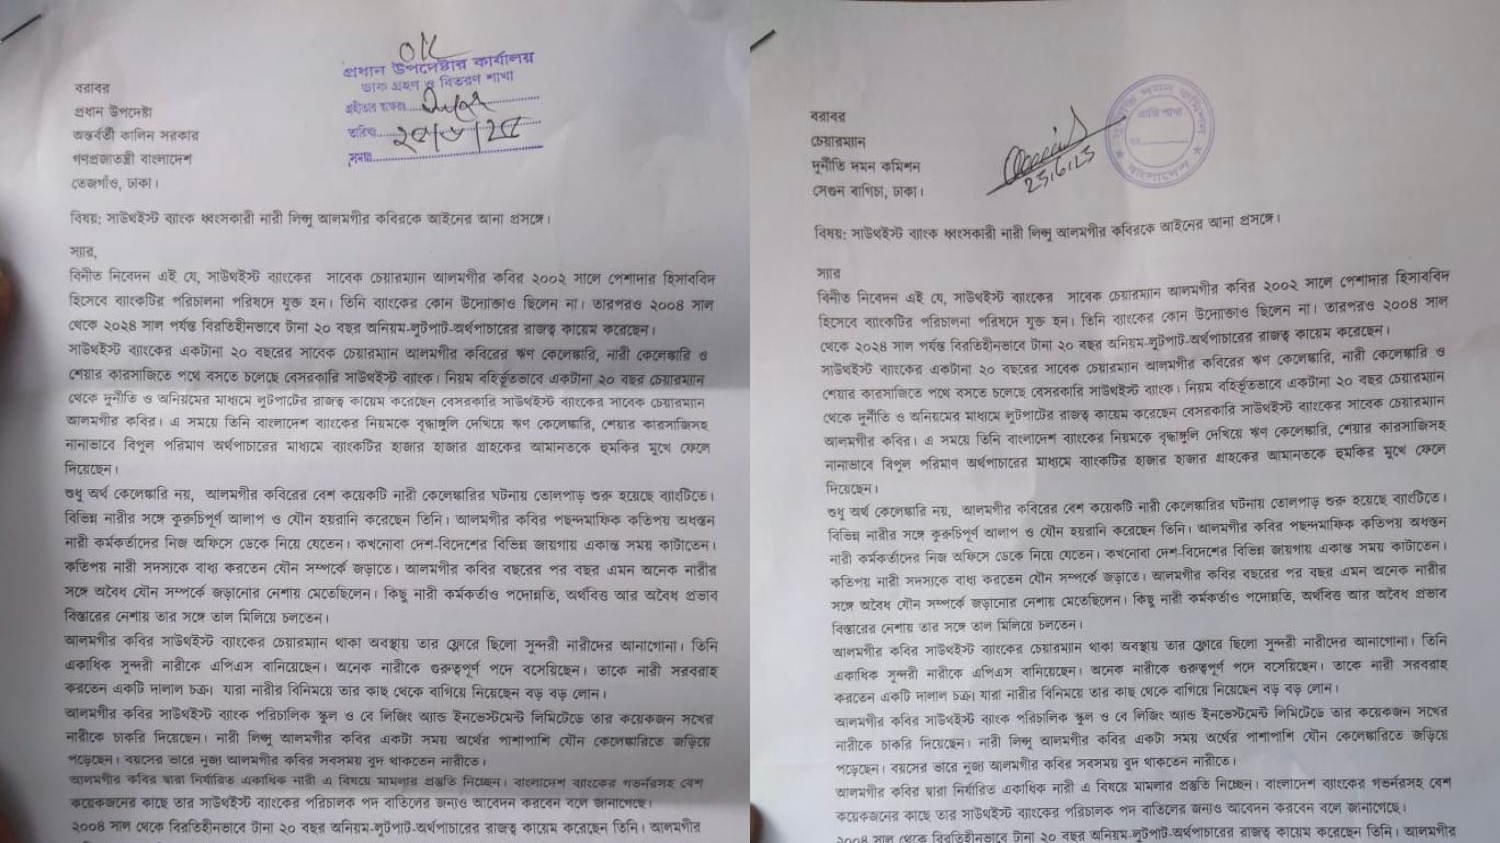 OK
প্রধান উপদেষ্টার কার্যালয়
ডাক গ্রহণ ও বিতরণ শাখা
তারিখ
সময়
বরাবর
প্রধান উপদেষ্টা
অন্তর্বর্তী কালিন সরকার
গণপ্রজাতন্ত্রী বাংলাদেশ
তেজগাঁও, ঢাকা।
বিষয়: সাউথইস্ট ব্যাংক ধ্বংসকারী নারী লিপ্সু আলমগীর কবিরকে আইনের আনা প্রসঙ্গে।
স্যার,
বিনীত নিবেদন এই যে, সাউথইস্ট ব্যাংকের সাবেক চেয়ারম্যান আলমগীর কবির ২০০২ সালে পেশাদার হিসাববিদ
হিসেবে ব্যাংকটির পরিচালনা পরিষদে যুক্ত হন। তিনি ব্যাংকের কোন উদ্যোক্তাও ছিলেন না। তারপরও ২০০৪ সাল
থেকে ২০২৪ সাল পর্যন্ত বিরতিহীনভাবে টানা ২০ বছর অনিয়ম-লুটপাট-অর্থপাচারের রাজত্ব কায়েম করেছেন।
সাউথইস্ট ব্যাংকের একটানা ২০ বছরের সাবেক চেয়ারম্যান আলমগীর কবিরের ঋণ কেলেঙ্কারি, নারী কেলেঙ্কারি ও
শেয়ার কারসাজিতে পথে বসতে চলেছে বেসরকারি সাউথইস্ট ব্যাংক। নিয়ম বহির্ভূতভাবে একটানা ২০ বছর চেয়ারম্যান
থেকে দুর্নীতি ও অনিয়মের মাধ্যমে লুটপাটের রাজত্ব কায়েম করেছেন বেসরকারি সাউথইস্ট ব্যাংকের সাবেক চেয়ারম্যান
আলমগীর কবির। এ সময়ে তিনি বাংলাদেশ ব্যাংকের নিয়মকে বৃদ্ধাঙ্গুলি দেখিয়ে ঋণ কেলেঙ্কারি, শেয়ার কারসাজিসহ
নানাভাবে বিপুল পরিমাণ অর্থপাচারের মাধ্যমে ব্যাংকটির হাজার হাজার গ্রাহকের আমানতকে হুমকির মুখে ফেলে
দিয়েছেন।
শুধু অর্থ কেলেঙ্কারি নয়, আলমগীর কবিরের বেশ কয়েকটি নারী কেলেঙ্কারির ঘটনায় তোলপাড় শুরু হয়েছে ব্যাংটিতে।
বিভিন্ন নারীর সঙ্গে কুরুচিপূর্ণ আলাপ ও যৌন হয়রানি করেছেন তিনি। আলমগীর কবির পছন্দমাফিক কতিপয় অধস্তন
নারী কর্মকর্তাদের নিজ অফিসে ডেকে নিয়ে যেতেন। কখনোবা দেশ-বিদেশের বিভিন্ন জায়গায় একান্ত সময় কাটাতেন।
কতিপয় নারী সদস্যকে বাধ্য করতেন যৌন সম্পর্কে জড়াতে। আলমগীর কবির বছরের পর বছর এমন অনেক নারীর
সঙ্গে অবৈধ যৌন সম্পর্কে জড়ানোর নেশায় মেতেছিলেন। কিছু নারী কর্মকর্তাও পদোন্নতি, অর্থবিত্ত আর অবৈধ প্রভাব
বিস্তারের নেশায় তার সঙ্গে তাল মিলিয়ে চলতেন।
আলমগীর কবির সাউথইস্ট ব্যাংকের চেয়ারম্যান থাকা অবস্থায় তার ফ্লোরে ছিলো সুন্দরী নারীদের আনাগোনা। তিনি
একাধিক সুন্দরী নারীকে এপিএস বানিয়েছেন। অনেক নারীকে গুরুত্বপূর্ণ পদে বসেয়িছেন। তাকে নারী সরবরাহ
করতেন একটি দালাল চক্র। যারা নারীর বিনিময়ে তার কাছ থেকে বাগিয়ে নিয়েছেন বড় বড় লোন।
আলমগীর কবির সাউথইস্ট ব্যাংক পরিচালিক স্কুল ও বে লিজিং অ্যান্ড ইনভেস্টমেন্ট লিমিটেডে তার কয়েকজন সখের
নারীকে চাকরি দিয়েছেন। নারী লিপ্সু আলমগীর কবির একটা সময় অর্থের পাশাপাশি যৌন কেলেঙ্কারিতে জড়িয়ে
পড়েছেন। বয়সের ভারে নুজ্য আলমগীর কবির সবসময় বুদ থাকতেন নারীতে।
আলমগীর কবির দ্বারা নির্যারিত একাধিক নারী এ বিষয়ে মামলার প্রস্তুতি নিচ্ছেন। বাংলাদেশ ব্যাংকের গভর্নরসহ বেশ
কয়েকজনের কাছে তার সাউথইস্ট ব্যাংকের পরিচালক পদ বাতিলের জন্যও আবেদন করবেন বলে জানাগেছে।
২০০৪ সাল থেকে বিরতিহীনভাবে টানা ২০ বছর অনিয়ম-লুটপাট-অর্থপাচারের রাজত্ব কায়েম করেছেন তিনি। আলমগীর
দুর্নীতি দমন কমিশন
বাংলাদেশ
25.6.25
বরাবর
চেয়ারম্যান
দুর্নীতি দমন কমিশন
সেগুন বাগিচা, ঢাকা।
বিষয়: সাউথইস্ট ব্যাংক ধ্বংসকারী নারী লিপ্সু আলমগীর কবিরকে আইনের আনা প্রসঙ্গে।
স্যার
বিনীত নিবেদন এই যে, সাউথইস্ট ব্যাংকের সাবেক চেয়ারম্যান আলমগীর কবির ২০০২ সালে পেশাদার হিসাববিদ
হিসেবে ব্যাংকটির পরিচালনা পরিষদে যুক্ত হন। তিনি ব্যাংকের কোন উদ্যোক্তাও ছিলেন না। তারপরও ২০০৪ সাল
থেকে ২০২৪ সাল পর্যন্ত বিরতিহীনভাবে টানা ২০ বছর অনিয়ম-লুটপাট-অর্থপাচারের রাজত্ব কায়েম করেছেন।
সাউথইস্ট ব্যাংকের একটানা ২০ বছরের সাবেক চেয়ারম্যান আলমগীর কবিরের ঋণ কেলেঙ্কারি, নারী কেলেঙ্কারি ও
শেয়ার কারসাজিতে পথে বসতে চলেছে বেসরকারি সাউথইস্ট ব্যাংক। নিয়ম বহির্ভূতভাবে একটানা ২০ বছর চেয়ারম্যান
থেকে দুর্নীতি ও অনিয়মের মাধ্যমে লুটপাটের রাজত্ব কায়েম করেছেন বেসরকারি সাউথইস্ট ব্যাংকের সাবেক চেয়ারম্যান
আলমগীর কবির। এ সময়ে তিনি বাংলাদেশ ব্যাংকের নিয়মকে বৃদ্ধাঙ্গুলি দেখিয়ে ঋণ কেলেঙ্কারি, শেয়ার কারসাজিসহ
নানাভাবে বিপুল পরিমাণ অর্থপাচারের মাধ্যমে ব্যাংকটির হাজার হাজার গ্রাহকের আমানতকে হুমকির মুখে ফেলে
দিয়েছেন।
শুধু অর্থ কেলেঙ্কারি নয়, আলমগীর কবিরের বেশ কয়েকটি নারী কেলেঙ্কারির ঘটনায় তোলপাড় শুরু হয়েছে ব্যাংটিতে।
বিভিন্ন নারীর সঙ্গে কুরুচিপূর্ণ আলাপ ও যৌন হয়রানি করেছেন তিনি। আলমগীর কবির পছন্দমাফিক কতিপয় অধস্তন
নারী কর্মকর্তাদের নিজ অফিসে ডেকে নিয়ে যেতেন। কখনোবা দেশ-বিদেশের বিভিন্ন জায়গায় একান্ত সময় কাটাতেন।
কতিপয় নারী সদস্যকে বাধ্য করতেন যৌন সম্পর্কে জড়াতে। আলমগীর কবির বছরের পর বছর এমন অনেক নারীর
সঙ্গে অবৈধ যৌন সম্পর্কে জড়ানোর নেশায় মেতেছিলেন। কিছু নারী কর্মকর্তাও পদোন্নতি, অর্থবিত্ত আর অবৈধ প্রভাব
বিস্তারের নেশায় তার সঙ্গে তাল মিলিয়ে চলতেন।
আলমগীর কবির সাউথইস্ট ব্যাংকের চেয়ারম্যান থাকা অবস্থায় তার ফ্লোরে ছিলো সুন্দরী নারীদের আনাগোনা। তিনি
একাধিক সুন্দরী নারীকে এপিএস বানিয়েছেন। অনেক নারীকে গুরুত্বপূর্ণ পদে বসেয়িছেন। তাকে নারী সরবরাহ
করতেন একটি দালাল চক্র। যারা নারীর বিনিময়ে তার কাছ থেকে বাগিয়ে নিয়েছেন বড় বড় লোন।
আলমগীর কবির সাউথইস্ট ব্যাংক পরিচালিক স্কুল ও বে লিজিং অ্যান্ড ইনভেস্টমেন্ট লিমিটেডে তার কয়েকজন সখের
নারীকে চাকরি দিয়েছেন। নারী লিপ্সু আলমগীর কবির একটা সময় অর্থের পাশাপাশি যৌন কেলেঙ্কারিতে জড়িয়ে
পড়েছেন। বয়সের ভারে নুজ্য আলমগীর কবির সবসময় বুদ থাকতেন নারীতে।
আলমগীর কবির দ্বারা নির্যারিত একাধিক নারী এ বিষয়ে মামলার প্রস্তুতি নিচ্ছেন। বাংলাদেশ ব্যাংকের গভর্নরসহ বেশ
কয়েকজনের কাছে তার সাউথইস্ট ব্যাংকের পরিচালক পদ বাতিলের জন্যও আবেদন করবেন বলে জানাগেছে।
২০০৪ সাল থেকে বিরতিহীনভাবে টানা ২০ বছর অনিয়ম-লুটপাট-অর্থপাচারের রাজত্ব কায়েম করেছেন তিনি। আলমগীর